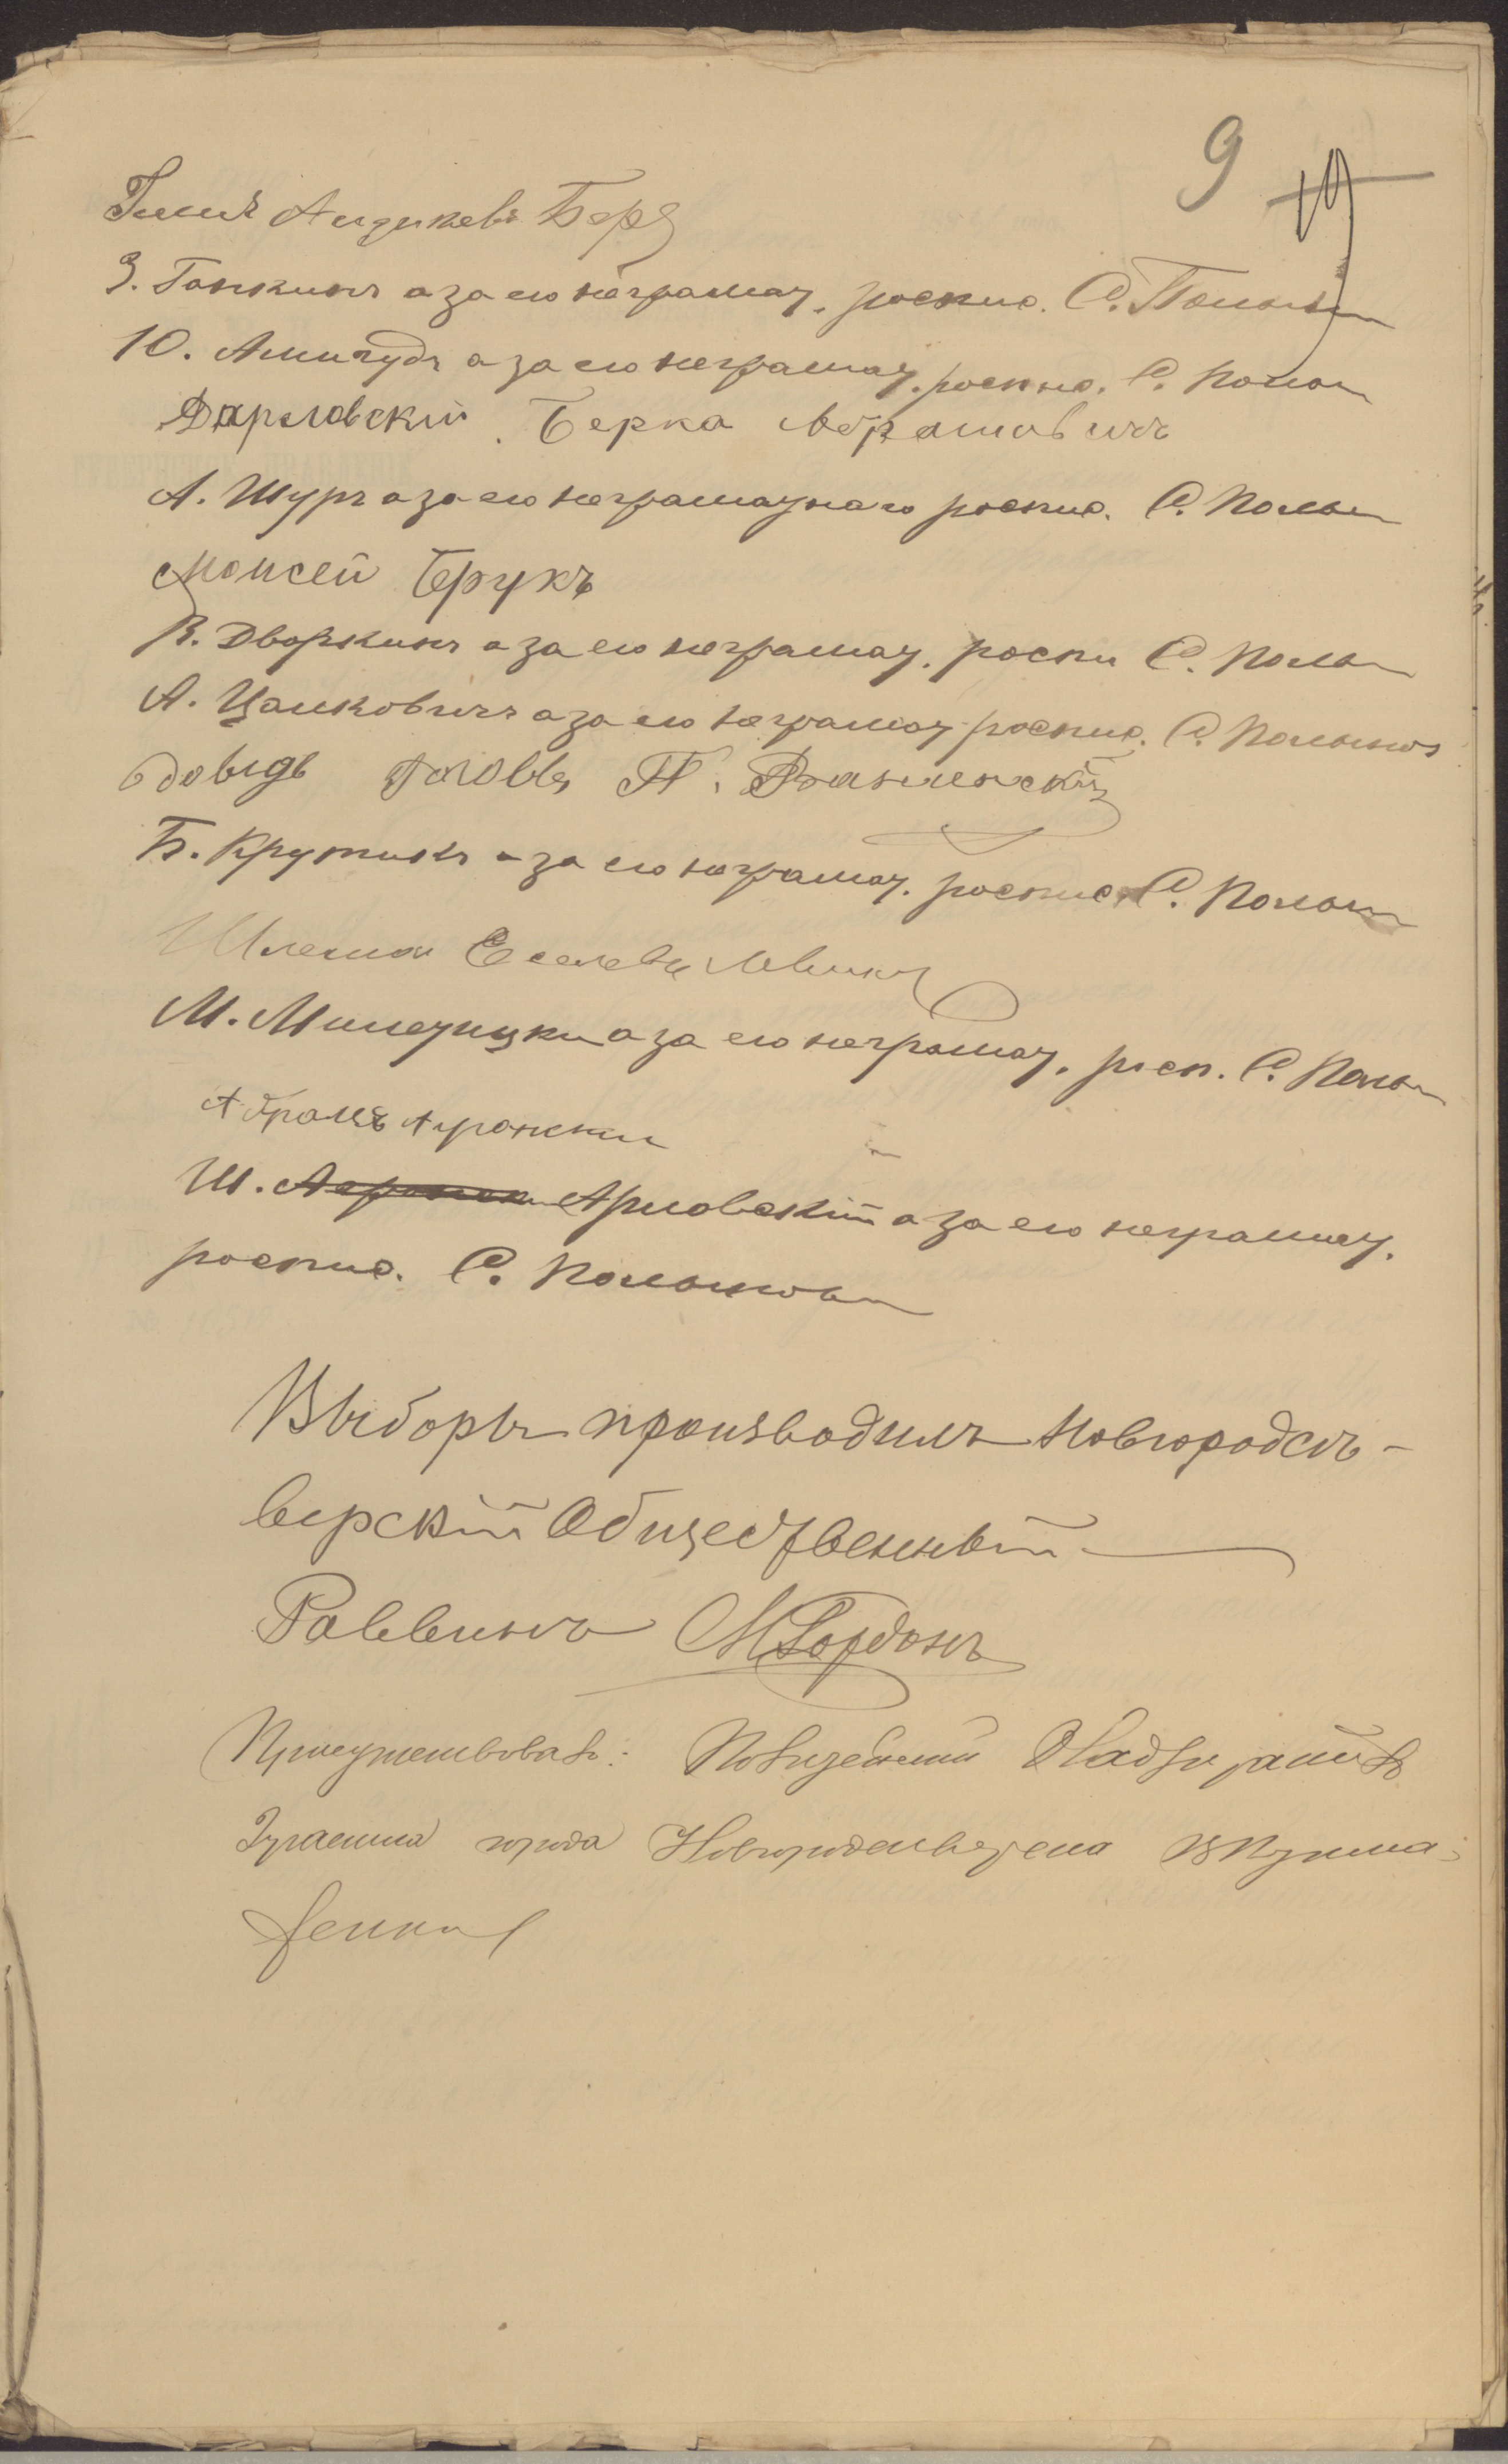 9 19
Гилиъ Айзиковъ Берз
З. Ганкинъ а за его неграмат. роспис. С. Полын
Ю. Амитудъ а за его неграмат. роспис. С. Полын
Дарловскій Берка Абрамовичъ
А. Шуръ а за его неграматнаго роспис. С. Полын
Моисей Брукъ
В. Дворкинъ а за его неграмат. роспи С. Полын
А. Цалковичъ а за его неграмат роспис. С. Полынов
Довыдъ П.
Б. Крутикъ а за его неграмат. роспис С. Полын
Шлема Еселевъ Левикъ
М. а за его неграмат. росп. С. Полын
Абрамъ Аронски
Ш. Арловскій а за его неграмат.
роспис. С. Полынов
Выборы производилъ Новгородсѣ-
верскій Общественный
Раввинъ МГордонъ
Присутствовалъ: Полицейскій Надзиратель
2 участка города Новгородсѣверска